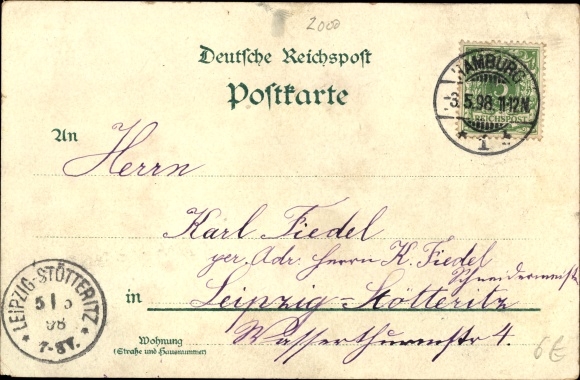 2000
Deutsche Reichspost
Postkarte
HAMBURG
-3.5.98.11-12N.
* 1 *
REICHSPOST
An
Herrn
Karl Fiedel
per. Adr. Herrn K. Fiedel
Schneidermeister
in Leipzig-Stötteritz
Wasserthurmstr 4.
Wohnung
(Straße und Hausnummer)
* LEIPZIG-STÖTTERITZ *
5 5
98
7-8V.
6€